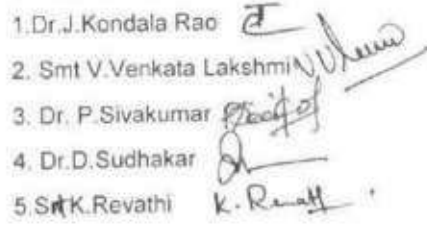 1.Dr.J.Kondala Rao
2. Smt V.Venkata Lakshmi
3. Dr. P.Sivakumar
4. Dr.D.Sudhakar
5.Smt K.Revathi K. Revathi